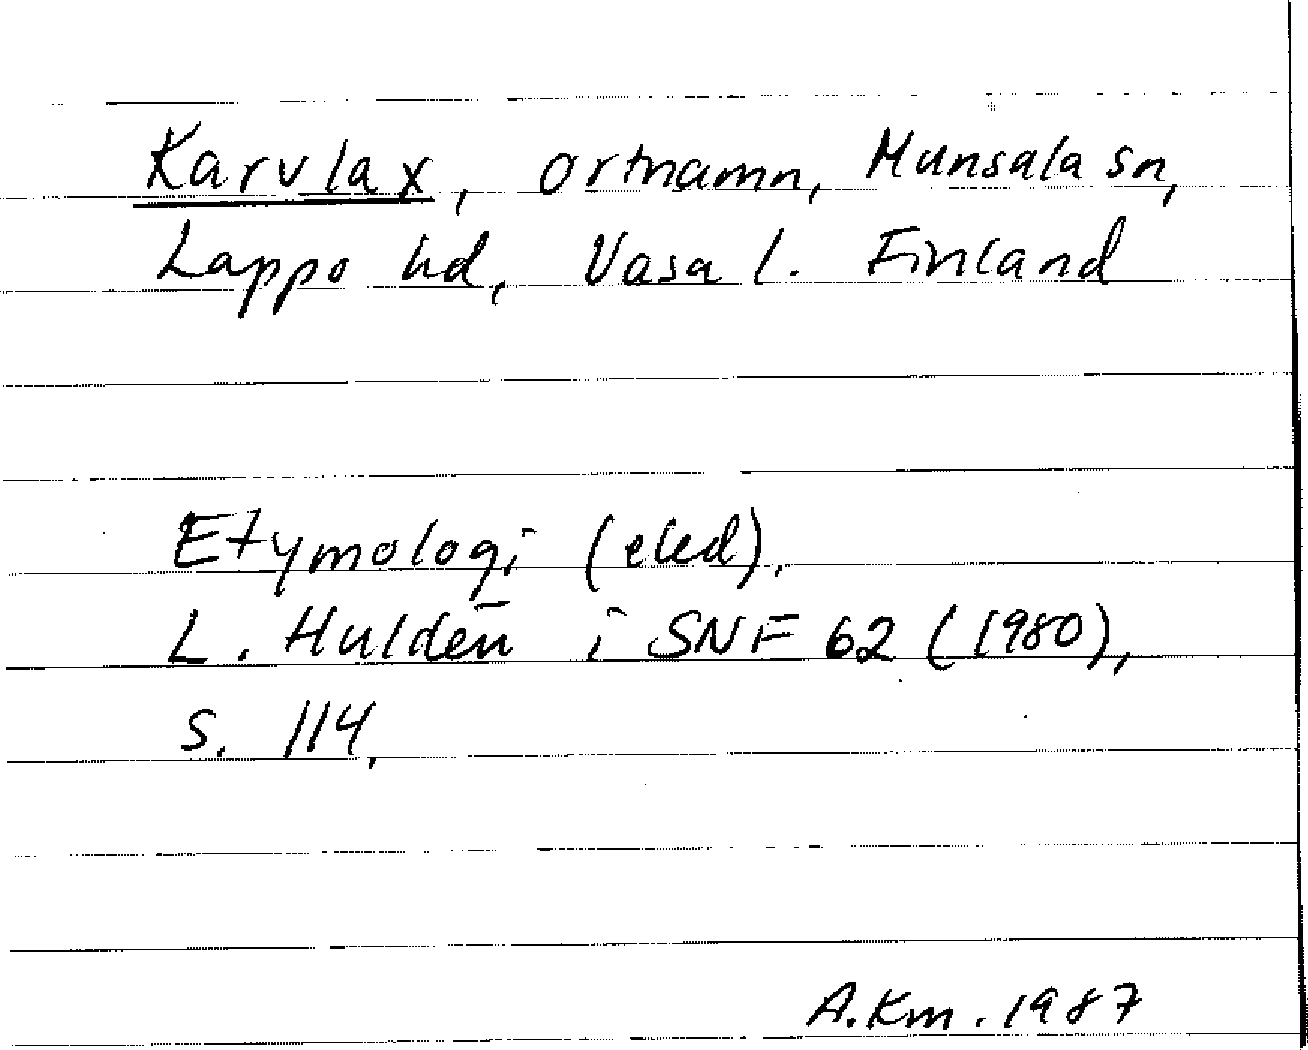 Karvlax, ortnamn, Munsala sn,
Lappo hd, Vasa l. Finland
Etymologi (eld),
L. Huldén i SNF 62 (1980),
s. 114,
A.Km. 1987